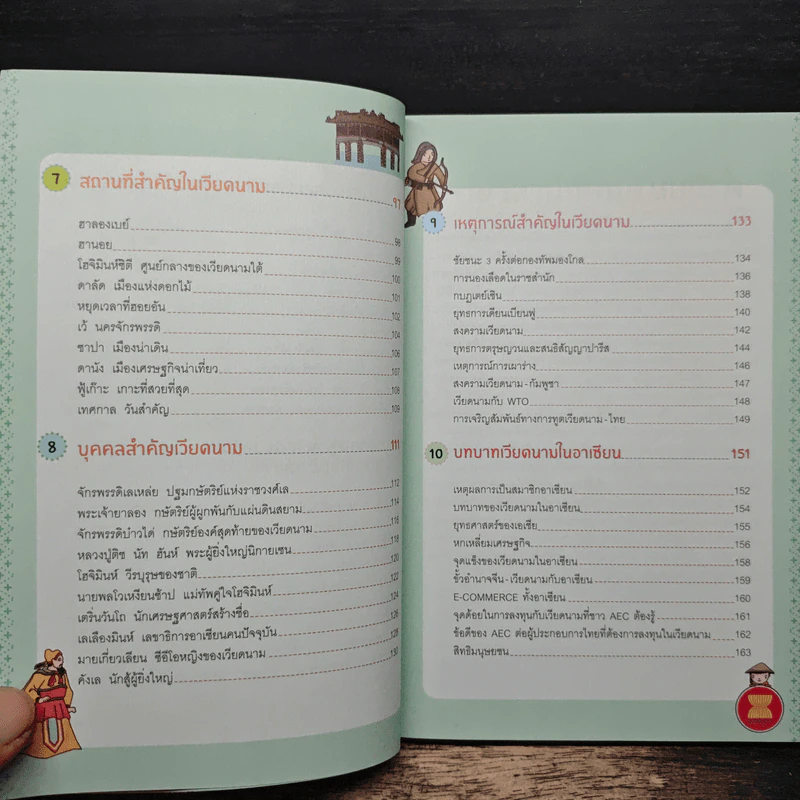 7 สถานที่สำคัญในเวียดนาม 97
ฮาลองเบย์ 98
ฮานอย 99
โฮจิมินห์ซิตี ศูนย์กลางของเวียดนามใต้ 100
ดาลัด เมืองแห่งดอกไม้ 101
หยุดเวลาที่ฮอยอัน 102
เว้ นครจักรพรรดิ 104
ซาปา เมืองน่าเดิน 106
ดานัง เมืองเศรษฐกิจน่าเที่ยว 107
ฟู้เก๊าะ เกาะที่สวยที่สุด 108
เทศกาล วันสำคัญ 109
8 บุคคลสำคัญเวียดนาม 111
จักรพรรดิเลเหล่ย ปฐมกษัตริย์แห่งราชวงศ์เล 112
พระเจ้ายาลอง กษัตริย์ผู้ผูกพันกับแผ่นดินสยาม 114
จักรพรรดิบ๋าวได่ กษัตริย์องค์สุดท้ายของเวียดนาม 116
หลวงปู่ติช นัท ฮันห์ พระผู้ยิ่งใหญ่นิกายเซน 118
โฮจิมินห์ วีรบุรุษของชาติ 120
นายพลโวเหงียนซ้าป แม่ทัพคู่ใจโฮจิมินห์ 122
เตริ่นวันโถ นักเศรษฐศาสตร์สร้างชื่อ 124
เลเลืองมินห์ เลขาธิการอาเซียนคนปัจจุบัน 126
มายเกี่ยวเลียน ซีอีโอหญิงของเวียดนาม 128
คังเล นักสู้ผู้ยิ่งใหญ่ 130
9 เหตุการณ์สำคัญในเวียดนาม 133
ชัยชนะ 3 ครั้งต่อกองทัพมองโกล 134
การนองเลือดในราชสำนัก 136
กบฏเตย์เซิน 138
ยุทธการเดียนเบียนฟู 140
สงครามเวียดนาม 142
ยุทธการตรุษญวนและสนธิสัญญาปารีส 144
เหตุการณ์การเผาร่าง 146
สงครามเวียดนาม-กัมพูชา 147
เวียดนามกับ WTO 148
การเจริญสัมพันธ์ทางการทูตเวียดนาม-ไทย 149
10 บทบาทเวียดนามในอาเซียน 151
เหตุผลการเป็นสมาชิกอาเซียน 152
บทบาทของเวียดนามในอาเซียน 154
ยุทธศาสตร์ของเอเชีย 155
หกเหลี่ยมเศรษฐกิจ 156
จุดแข็งของเวียดนามในอาเซียน 158
ขั้วอำนาจจีน-เวียดนามกับอาเซียน 159
E-COMMERCE ทั้งอาเซียน 160
จุดด้อยในการลงทุนกับเวียดนามที่ชาว AEC ต้องรู้ 161
ข้อดีของ AEC ต่อผู้ประกอบการไทยที่ต้องการลงทุนในเวียดนาม 162
สิทธิมนุษยชน 163